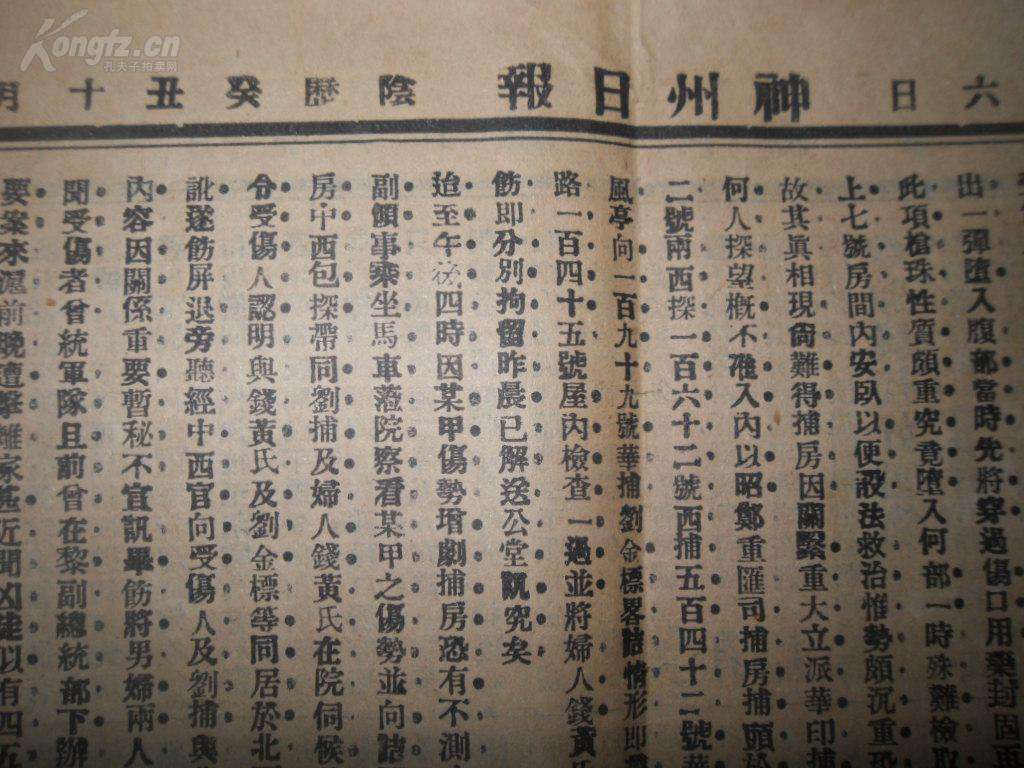 Kongfz.cn
孔夫子拍卖网
六日
神州日報
陰歷癸丑十月
出一彈墮入腹部當時先將穿過傷口用藥封固再
此項槍珠性質頗重究竟墮入何部一時殊難檢取
上七號房間內安臥以便設法救治惟勢頗沉重恐
故其眞相現尙難得捕房因關緊重大立派華印捕
何人探望槪不准入內以昭鄭重匯司捕房捕頭於
二號兩西探一百六十二號西捕五百四十二號華
風亭向一百九十九號華捕劉金標畧詰情形卽
路一百四十五號屋內檢查一過並將婦人錢黃氏
飭卽分別拘留昨晨已解送公堂訊究矣
迨至午後四時因某甲傷勢增劇捕房恐有不測
副領事乘坐馬車蒞院察看某甲之傷勢並向詰
房中西包探帶同劉捕及婦人錢黃氏在院伺候
分受傷人認明與錢黃氏及劉金標等同居於北
訛遂飭屏退旁聽經中西官向受傷人及劉捕與
內容因關係重要暫秘不宣訊畢飭將男婦兩人
聞受傷者曾統軍隊且前曾在黎副總統部下辦
要案來滬前晚遭擊離家甚近聞凶徒以有四五